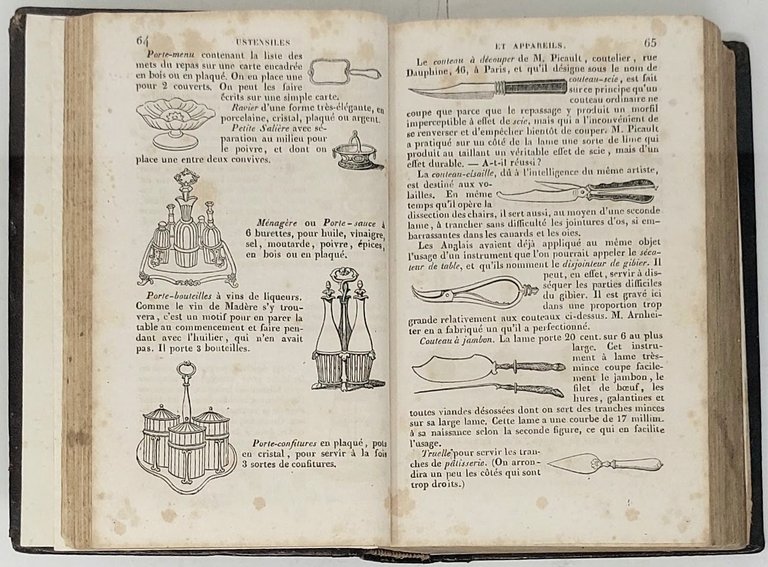 64 USTENSILES
Porte-menu contenant la liste des
mets du repas sur une carte encadrée
en bois ou en plaqué. On en place une
pour 2 couverts. On peut les faire
écrits sur une simple carte.
Ravier d'une forme très-élégante, en
porcelaine, cristal, plaqué ou argent.
Petite Salière avec sé-
paration au milieu pour
le poivre, et dont on
place une entre deux convives.
Ménagère ou Porte-sauce à
6 burettes, pour huile, vinaigre,
sel, moutarde, poivre, épices,
en bois ou en plaqué.
Porte-bouteilles à vins de liqueurs.
Comme le vin de Madère s'y trou-
vera, c'est un motif pour en parer la
table au commencement et faire pen-
dant avec l'huilier, qui n'en avait
pas. Il porte 3 bouteilles.
Porte-confitures en plaqué, pots
en cristal, pour servir à la fois
3 sortes de confitures.
ET APPAREILS. 65
Le couteau à découper de M. Picault, coutelier, rue
Dauphine, 46, à Paris, et qu'il désigne sous le nom de
couteau-scie, est fait
sur ce principe qu'un
couteau ordinaire ne
coupe que parce que le repassage y produit un morfil
imperceptible à effet de scie, mais qui a l'inconvénient de
se renverser et d'empêcher bientôt de couper. M. Picault
a pratiqué sur un côté de la lame une sorte de lime qui
produit au taillant un véritable effet de scie, mais d'un
effet durable. — A-t-il réussi?
La couteau-cisaille, dû à l'intelligence du même artiste,
est destiné aux vo-
lailles. En même
temps qu'il opère la
dissection des chairs, il sert aussi, au moyen d'une seconde
lame, à trancher sans difficulté les jointures d'os, si em-
barrassantes dans les canards et les oies.
Les Anglais avaient déjà appliqué au même objet
l'usage d'un instrument que l'on pourrait appeler le séca-
teur de table, et qu'ils nomment le disjointeur de gibier. Il
peut, en effet, servir à dis-
séquer les parties difficiles
du gibier. Il est gravé ici
dans une proportion trop
grande relativement aux couteaux ci-dessus. M. Arnhei-
ter en a fabriqué un qu'il a perfectionné.
Couteau à jambon. La lame porte 20 cent. sur 6 au plus
large. Cet instru-
ment à lame très-
mince coupe facile-
ment le jambon, le
filet de bœuf, les
hures, galantines et
toutes viandes désossées dont on sert des tranches minces
sur sa large lame. Cette lame a une courbe de 17 millim.
à sa naissance selon la seconde figure, ce qui en facilite
l'usage.
Truelle pour servir les tran-
ches de pâtisserie. (On arron-
dira un peu les côtés qui sont
trop droits.)